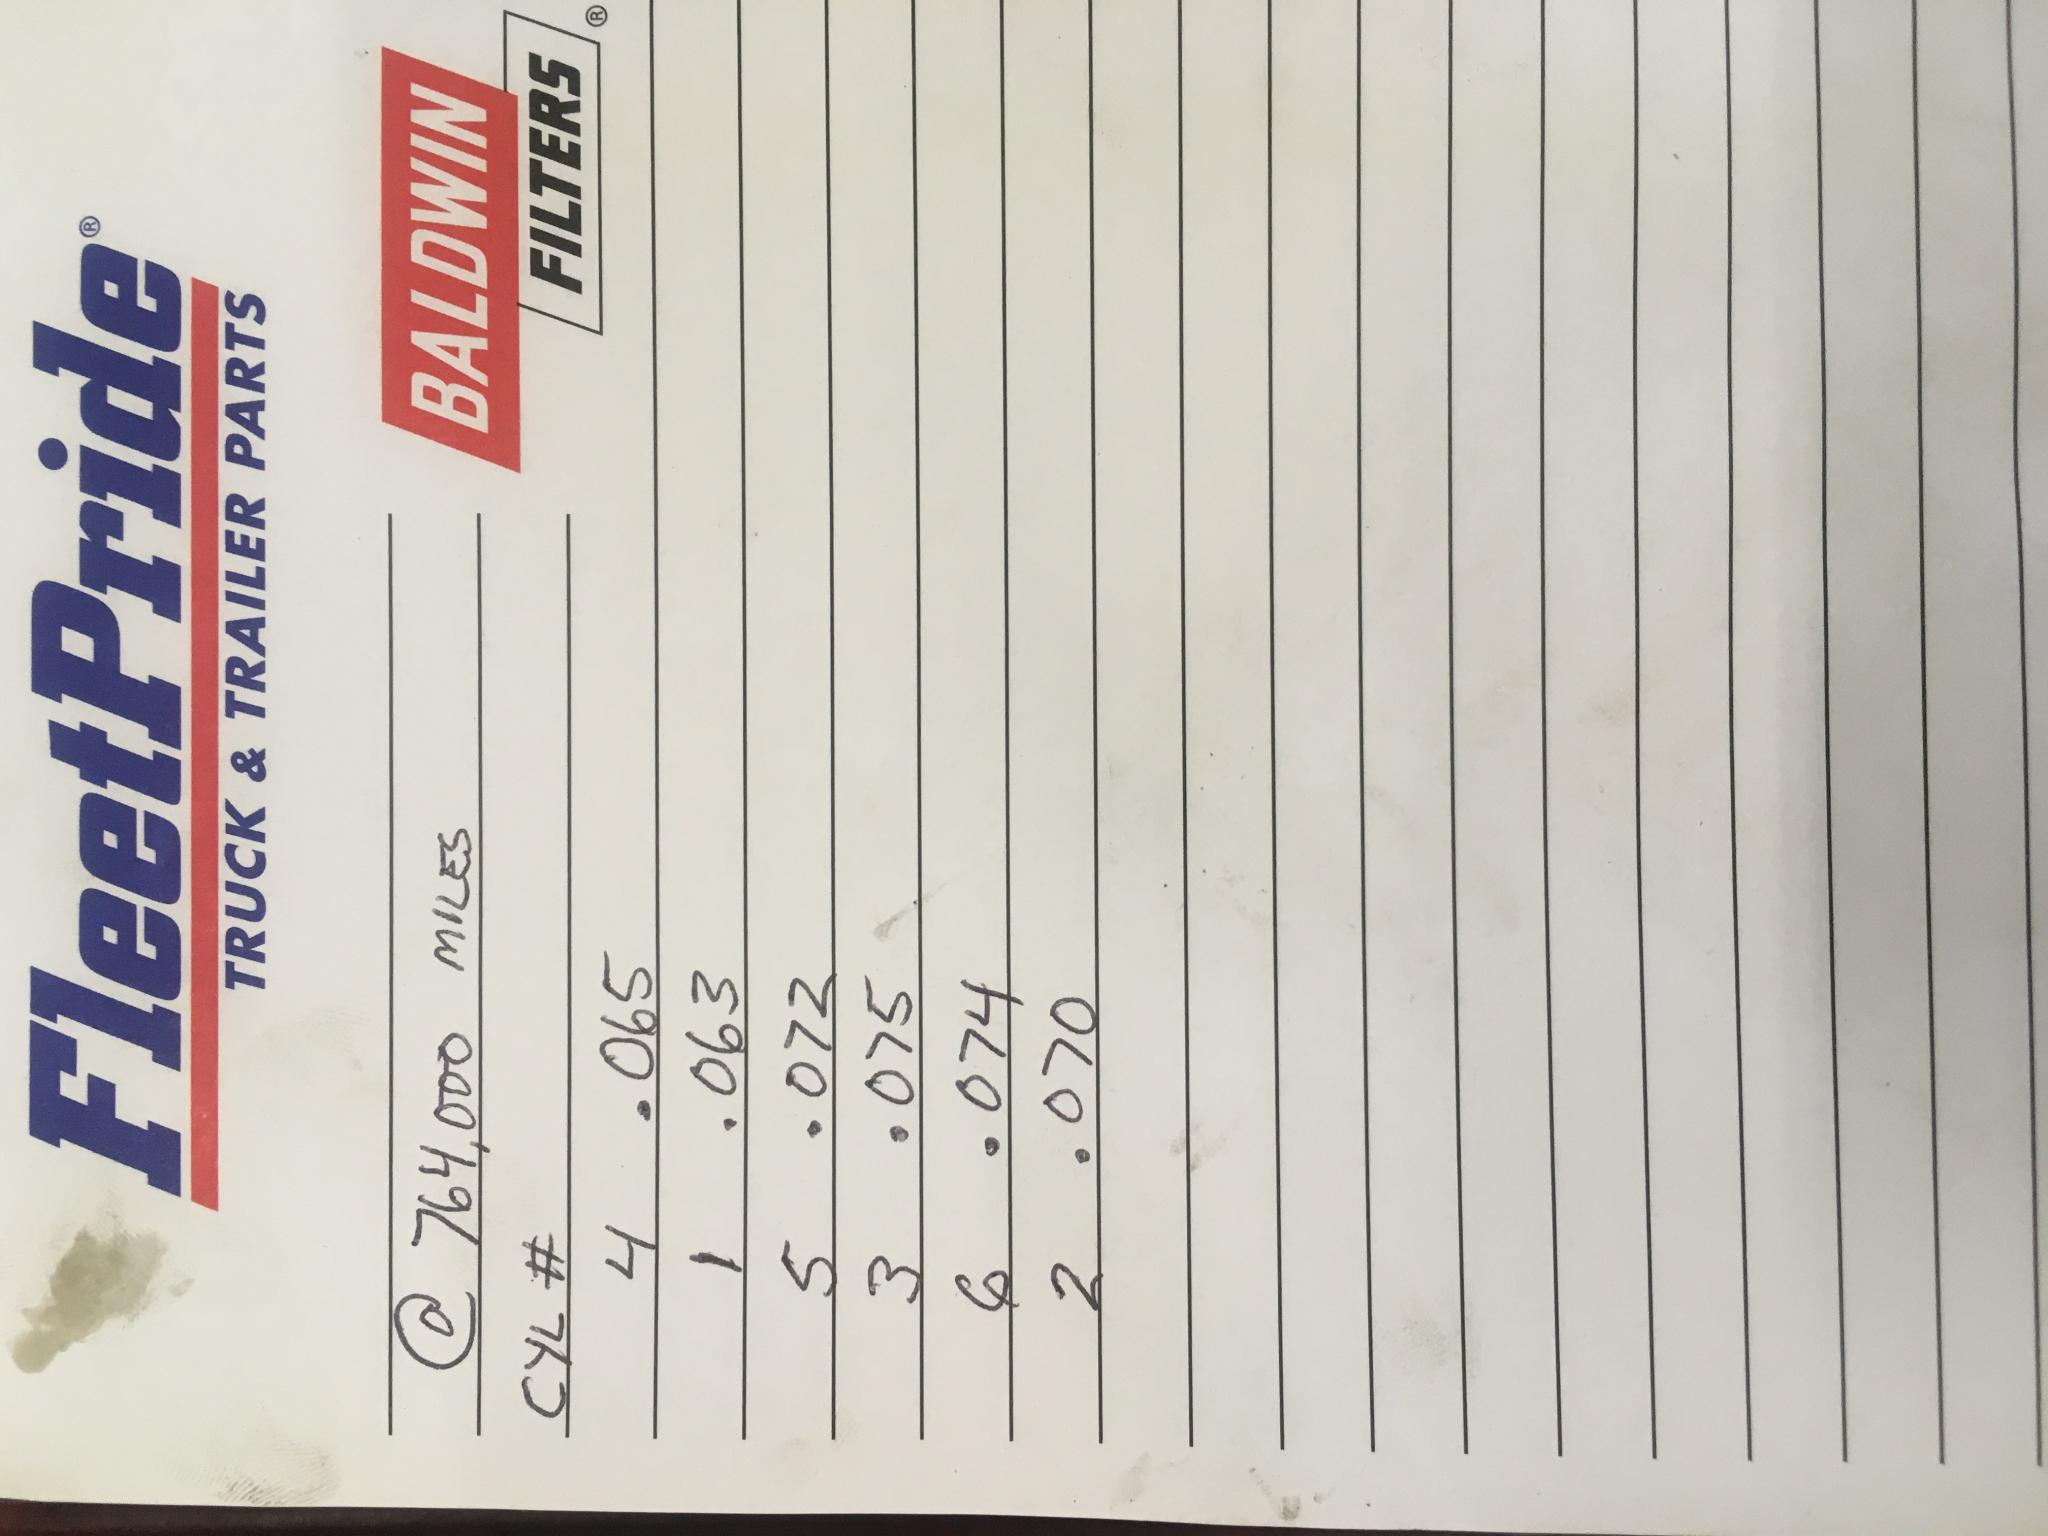 FleetPride®
TRUCK & TRAILER PARTS
BALDWIN
FILTERS®
@ 764,000 MILES
CYL #
4 .065
1 .063
5 .072
3 .075
6 .074
2 .070